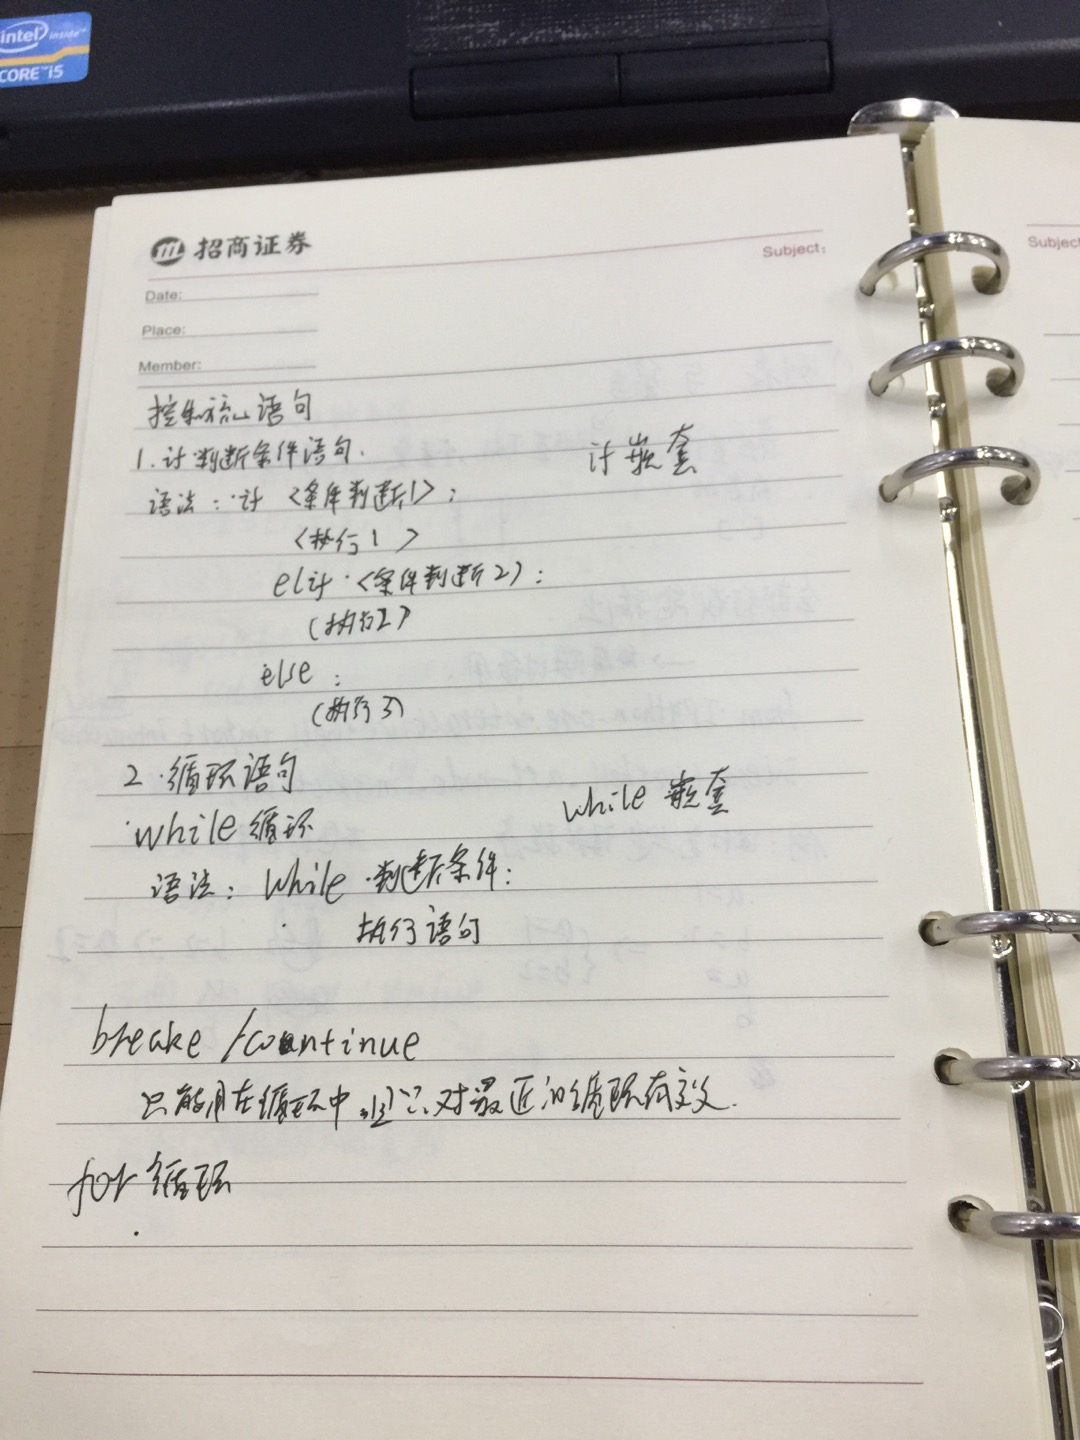 intel inside™
CORE™ i5
招商证券
Subject:
Subject
Date:
Place:
Member:
控制流语句
1. if 判断条件语句.
if 嵌套
语法: if <条件判断1>:
<执行1>
elif <条件判断2>:
<执行2>
else:
<执行3>
2. 循环语句
while 循环
while 嵌套
语法: while 判断条件:
执行语句
breake / continue
只能用在循环中,且只对最近的循环有意义.
for 循环